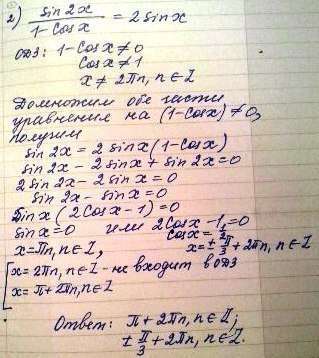 2) sin 2x / (1 - Cosx) = 2 sin x
ОДЗ: 1 - Cosx ≠ 0
Cosx ≠ 1
x ≠ 2πn, n ∈ Z
Домножим обе части
уравнения на (1-Cosx) ≠ 0,
получим
sin 2x = 2 sinx (1-Cosx)
sin 2x - 2 sinx + sin 2x = 0
2 sin 2x - 2 sinx = 0
sin 2x - sinx = 0
Sinx (2Cosx - 1) = 0
sinx = 0 или 2Cosx - 1 = 0
x = πn, n ∈ Z Cosx = 1/2
x = ± π/3 + 2πn, n ∈ Z
[ x = 2πn, n ∈ Z - не входит в ОДЗ
x = π + 2πn, n ∈ Z
Ответ: π + 2πn, n ∈ Z;
± π/3 + 2πn, n ∈ Z.